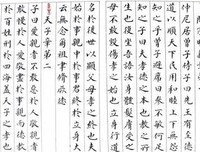 仲尼居曾子侍子曰先王有至
道以順天下民用和睦上下無怨
知之乎曾子避席曰參不敏何足
知之子曰夫孝德之本也教之
生也復坐吾語汝身體髮膚受
母不敢毀傷孝之始也立身行道
名於後世以顯父母孝之終也夫
始於事親中於事君終於立身大
云無念爾祖聿脩厥德
天子章第二
子曰愛親者不敢惡於人敬親者
敢慢於人愛敬盡於事親而德教
於百姓刑於四海蓋天子之孝也